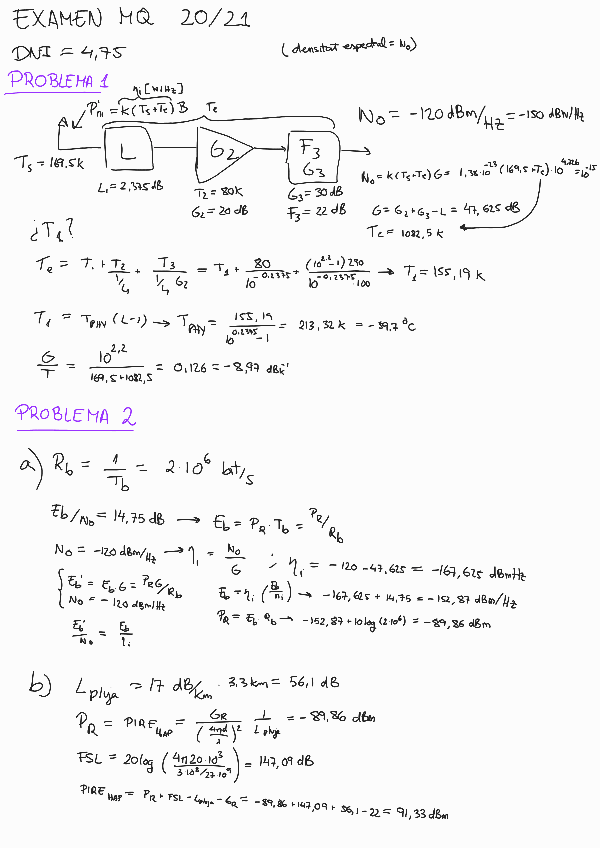 EXAMEN MQ 20/21
DNI = 4,75
(densitat espectral = N₀)
PROBLEMA 1
ηᵢ [W/Hz]
P'ₙᵢ = k(Ts+Te) B
Te
N₀ = -120 dBm/Hz = -150 dBW/Hz
Ts = 169,5k
L
G₂
F₃
G₃
L₁ = 2,375 dB
T₂ = 80k
G₂ = 20 dB
G₃ = 30 dB
F₃ = 22 dB
N₀ = k(Ts+Te)G = 1,38·10⁻²³ (169,5+Te)·10^4,7625 = 10⁻¹⁵
G = G₂+G₃-L = 47,625 dB
Te = 1082,5 k
¿T₁?
Te = T₁ + T₂/(1/L₁) + T₃/(1/L₁ G₂) = T₁ + 80/10^-0,2375 + (10^2,2 -1) 290/(10^-0,2375 · 100) → T₁ = 155,19 k
T₁ = T_PHY (L-1) → T_PHY = 155,19/(10^0,2375 - 1) = 213,32 k = -59,7 °C
G/T = 10^2,2/(169,5+1082,5) = 0,126 = -8,97 dBk⁻¹
PROBLEMA 2
a) Rb = 1/Tb = 2·10⁶ bit/s
Eb/N₀ = 14,75 dB → Eb = P_R · Tb = P_R/Rb
N₀ = -120 dBm/Hz → ηᵢ = N₀/G ; ηᵢ = -120 - 47,625 = -167,625 dBm/Hz
Eb' = Eb·G = P_R G/Rb
N₀ = -120 dBm/Hz
Eb = ηᵢ (Eb/ηᵢ) → -167,625 + 14,75 = -152,87 dBm/Hz
Eb'/N₀ = Eb/ηᵢ
P_R = Eb · Rb → -152,87 + 10 log (2·10⁶) = -89,86 dBm
b) L pluja = 17 dB/km · 3.3 km = 56,1 dB
P_R = PIRE_HAP = G_R/(4πd/λ)² 1/L pluja = -89,86 dBm
FSL = 20 log (4π20·10³/(3·10⁸/27·10⁹)) = 147,09 dB
PIRE_HAP = P_R + FSL - L pluja - G_R = -89,86 + 147,09 + 56,1 - 22 = 91,33 dBm